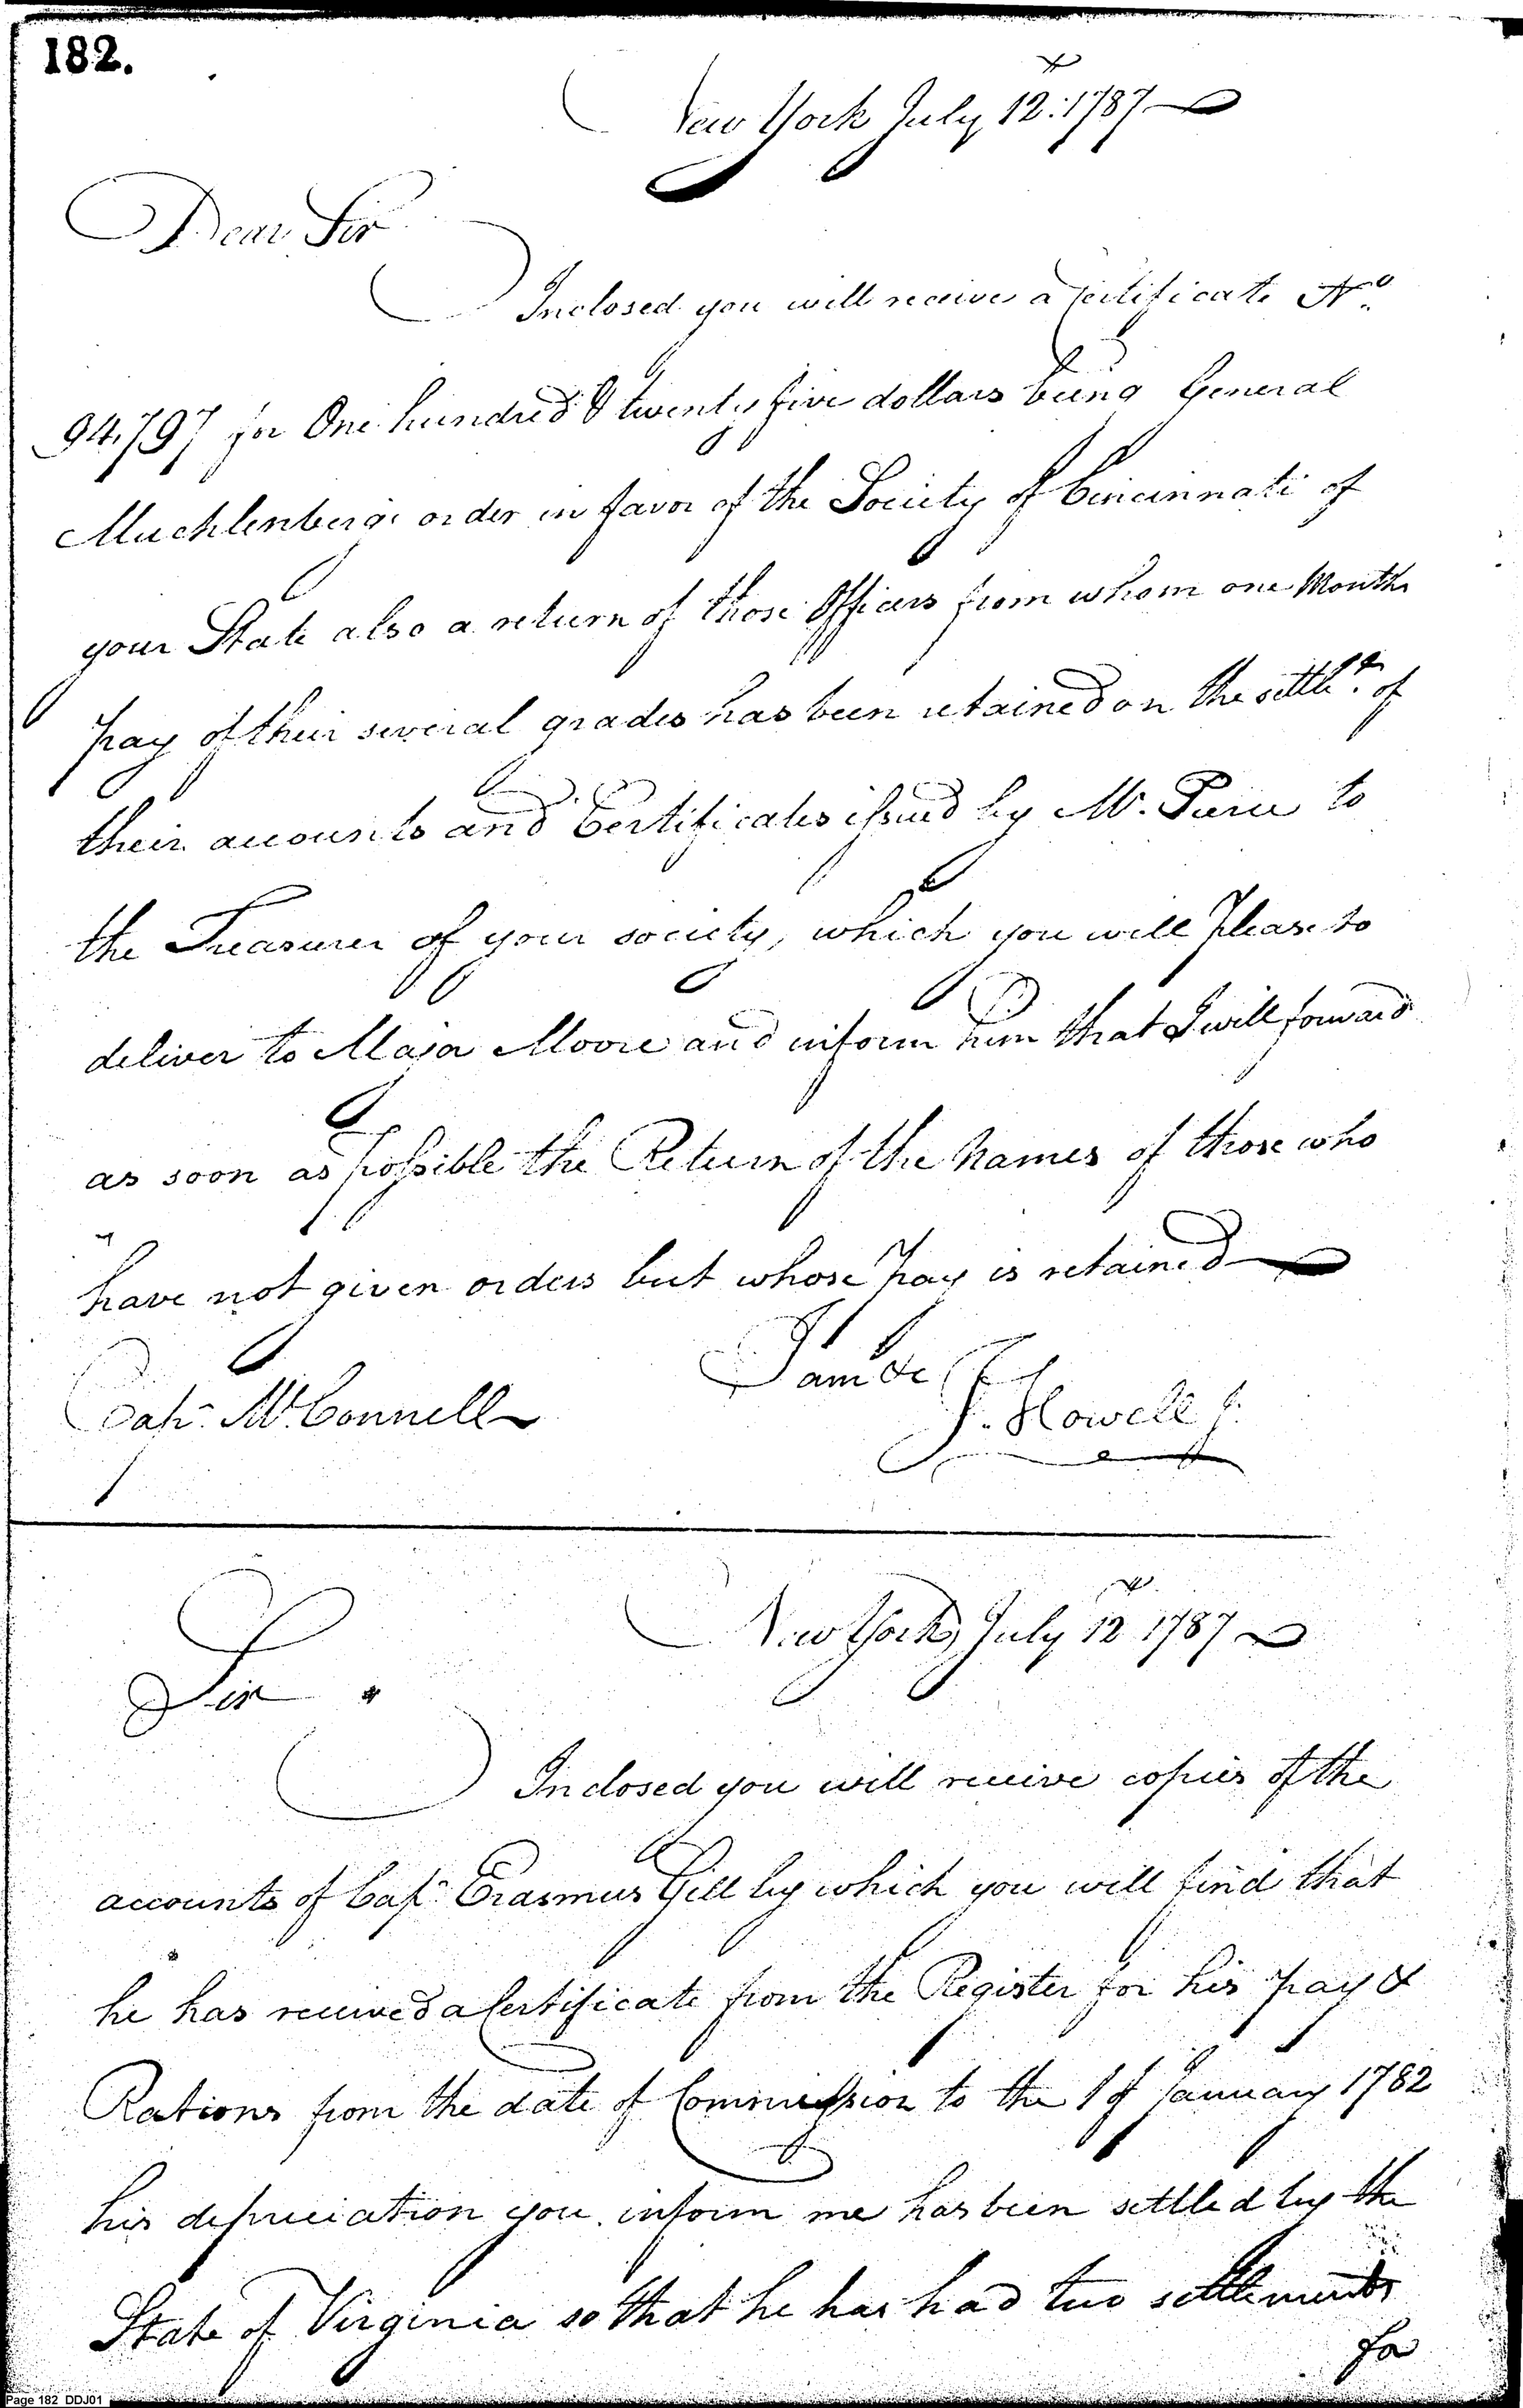 182.
New York July 12. 1787
Dear Sir
Inclosed you will receive a Certificate No.
94.797 for One hundred & twenty five dollars being General
Muchlenbergs order in favor of the Society of Cincinnati of
your State also a return of those Officers from whom one Months
pay of their several grades has been retained on the settlt. of
their accounts and Certificates issued by Mr. Pierce to
the Treasurer of your society, which you will please to
deliver to Major Moore and inform him that I will forward
as soon as possible the Return of the Names of those who
have not given orders but whose pay is retained
I am &c
Capt. McConnell
J. Howell Jr.
New York July 12 1787
Sir
Inclosed you will receive copies of the
accounts of Capt. Erasmus Gill by which you will find that
he has received a Certificate from the Register for his pay &
Rations from the date of Commission to the 1st January 1782
his depreciation you inform me has been settled by the
State of Virginia so that he has had two settlements
for
Page 182 DDJ01